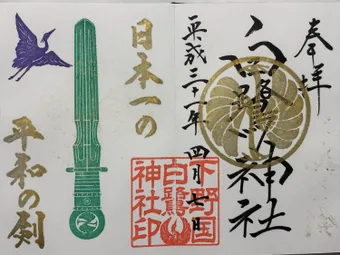 奉拝
白鷺神社
平成三十一年 四月七日
下野国
白鷺
神社印
日本一の
平和の剣